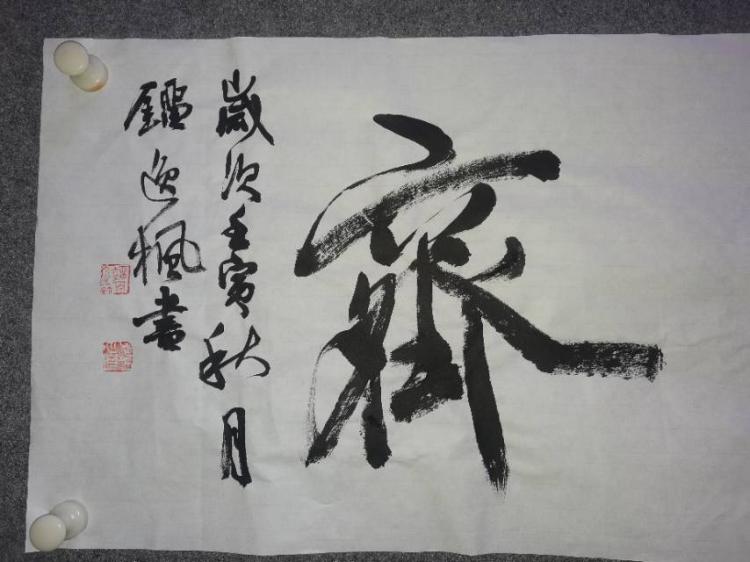 齋
歲次壬寅秋月
逸楓書